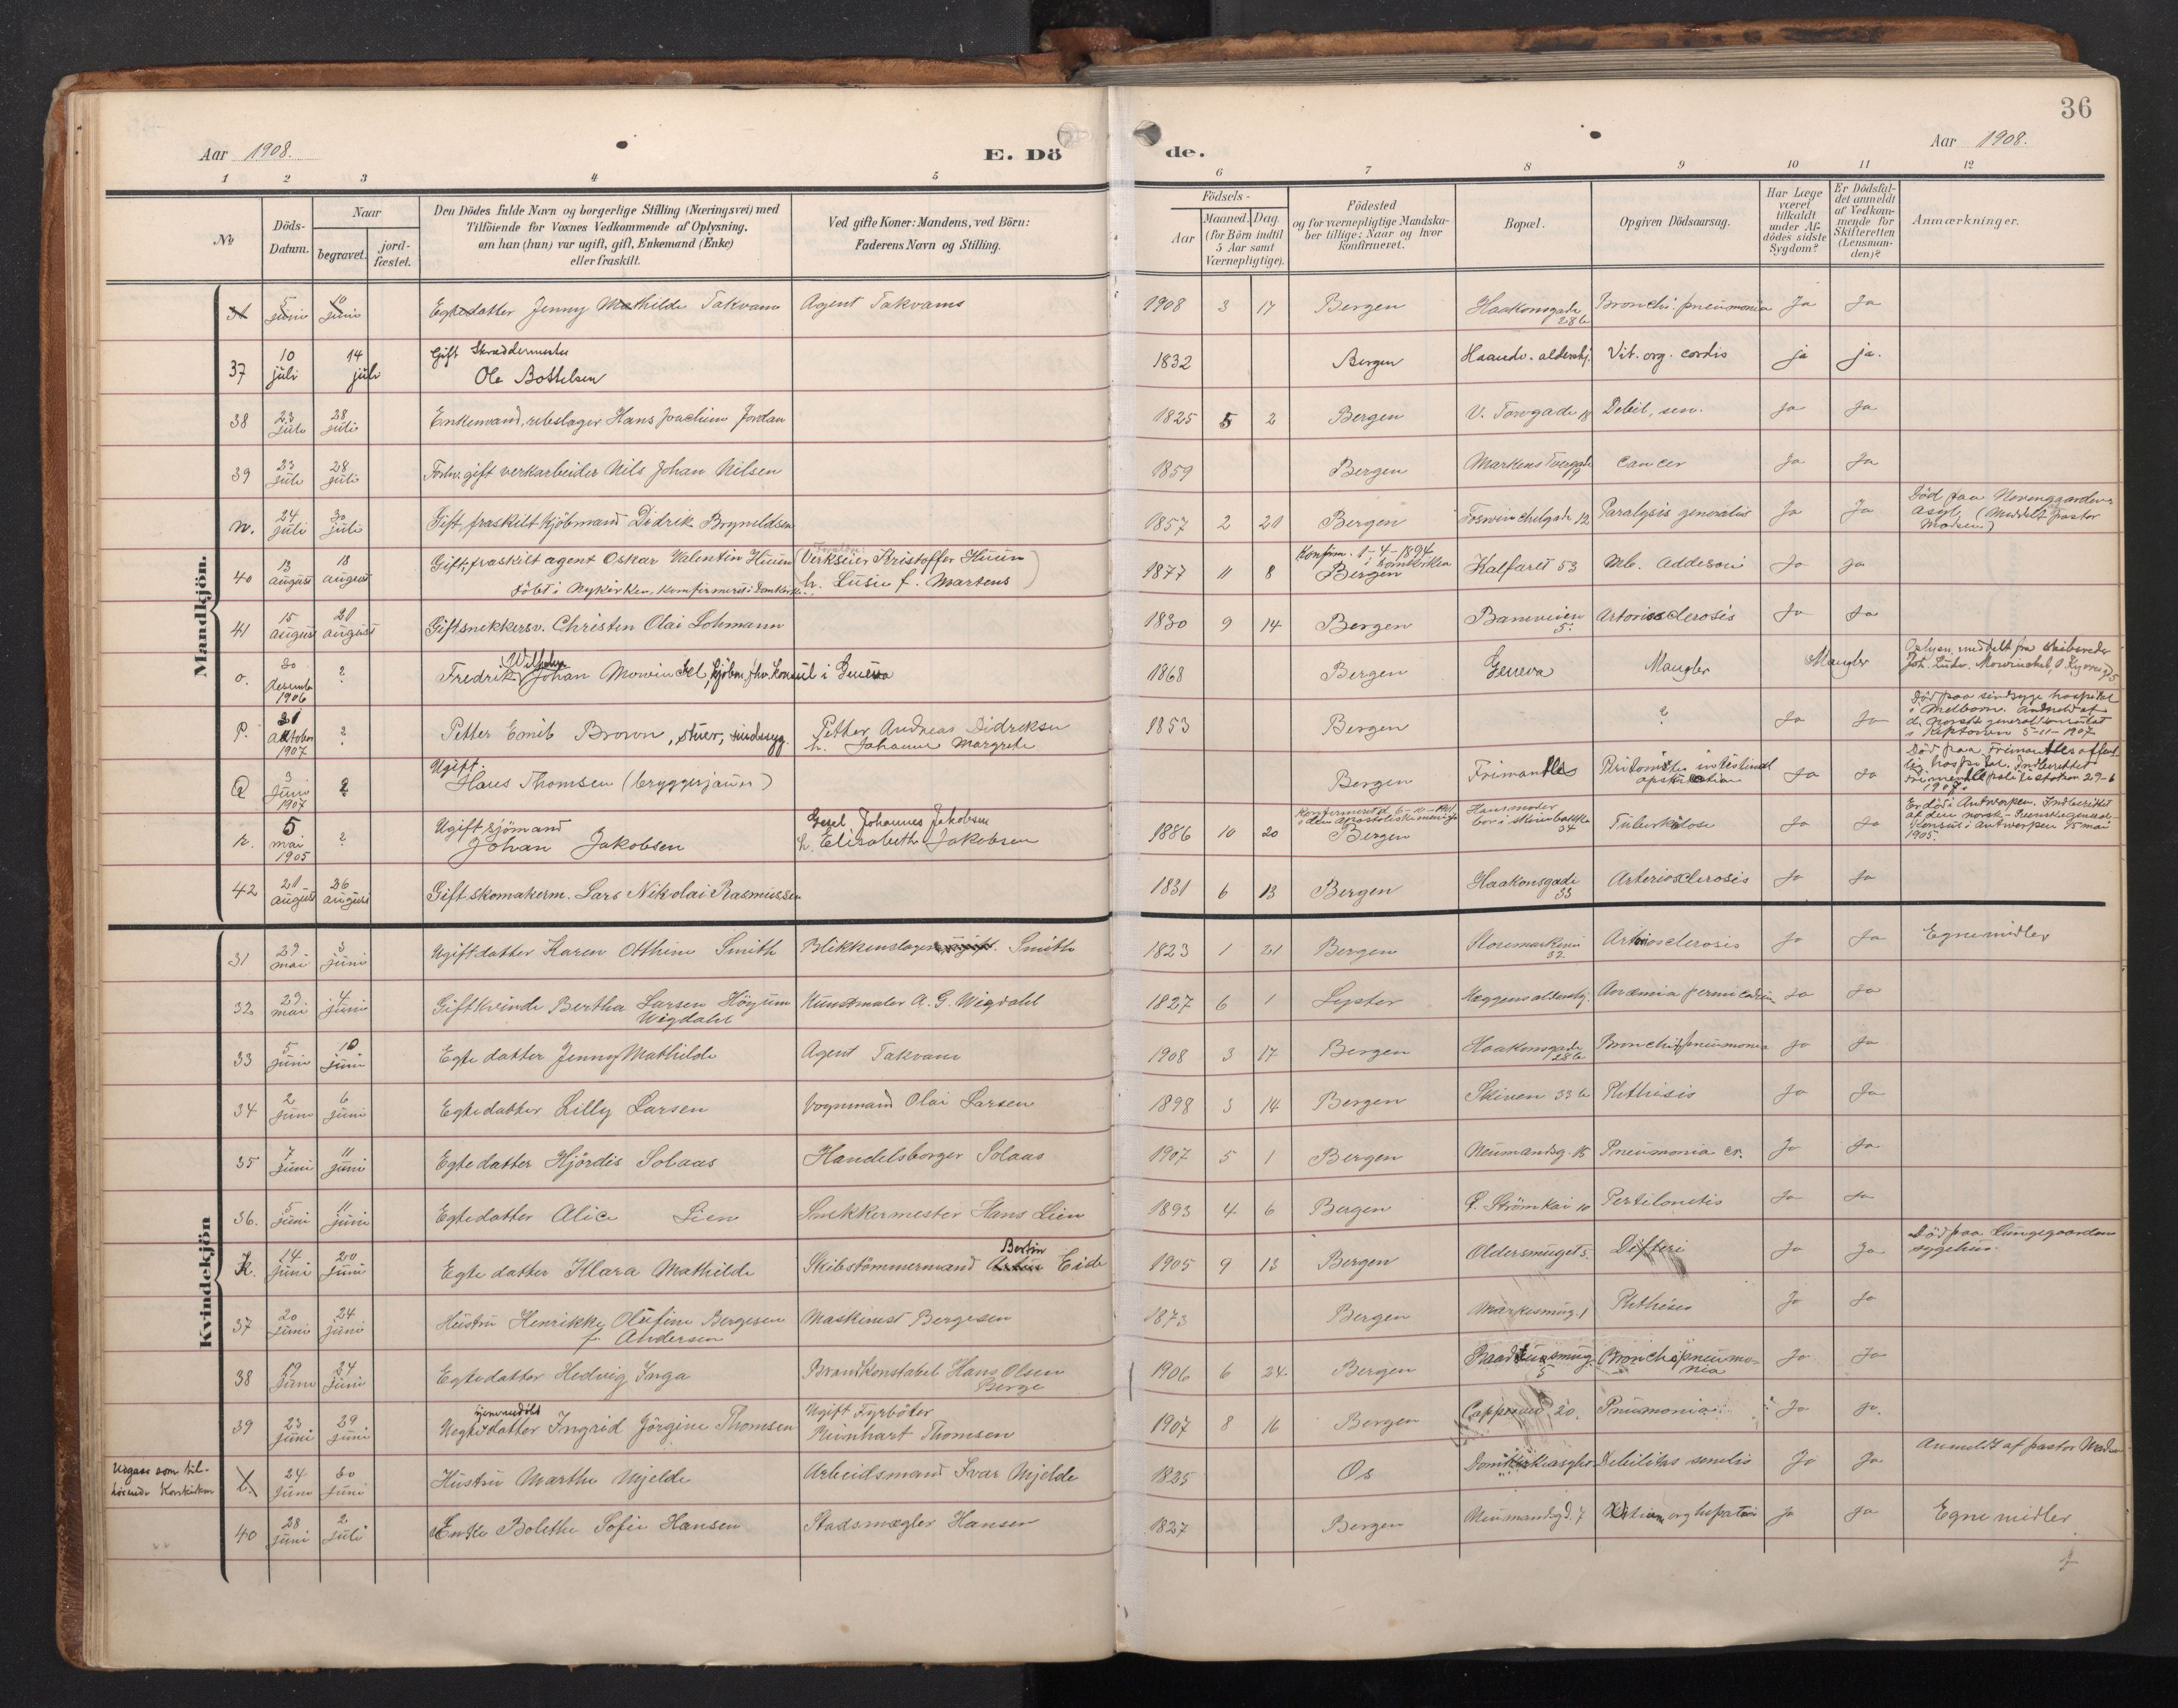 36
Aar 1908.
E. Dö
de.
Aar 1908.
1 2 3 4 5 6 7 8 9 10 11 12
No
Döds-
Datum.
Naar
begravet.
jord-
fæstet.
Den Dödes fulde Navn og borgerlige Stilling (Næringsvei) med
Tilföiende for Voxnes Vedkommende af Oplysning,
om han (hun) var ugift, gift, Enkemand (Enke)
eller fraskilt.
Ved gifte Koner: Mandens, ved Börn:
Faderens Navn og Stilling.
Födsels-
Aar
Maaned. Dag.
(for Börn indtil
5 Aar samt
Værnepligtige).
Födested
og for værnepligtige Mandska-
ber tillige: Naar og hvor
konfirmeret.
Bopæl.
Opgiven Dödsaarsag.
Har Læge
været
tilkaldt
under Af-
dödes sidste
Sygdom?
Er Dödsfal-
det anmeldt
af Vedkom-
mende for
Skifteretten
(Lensman-
den)?
Anmærkninger.
Mandkjön.
5 juni 10 juni Egtedatter Jenny Mathilde Takvam Agent Takvams 1908 3 17 Bergen Haakonsgade 28b Bronchi. pneumonia Ja Ja
37 10 juli 14 juli Gift Skræddermester
Ole Bottelsen 1832 Bergen Haandv. aldershj. Vit. org. cordis ja ja.
38 23 juli 28 juli Enkemand, rebslager Hans Joachim Jordan 1825 5 2 Bergen V. Torvgade 18 Debil. sen. Ja Ja
39 23 juli 28 juli Forhv. gift verkarbeider Nils Johan Nilsen 1859 Bergen Markens Tvergade 9 Cancer Ja Ja
n. 24 juli 30 juli Gift, fraskilt kjöbmand Didrik Bryneldsen 1857 2 21 Bergen 12 Paralysis generalis Ja Ja Död paa Nevengaardens
asyl (Meddelt pastor
Madsen)
40 13 august 18 august Gift, fraskilt agent Oskar Valentin Huun (Verkseier Kristoffer Huun
döbt i Nykirken, konfirmeret i Domkirken. h. Lusie f. Martens) 1877 11 8 Konfirm. 1-4-1894
i Domkirken
Bergen Kalfaret 53 Mb. Addesoni Ja Ja
41 15 august 20 august Gift snekkersv. Christen Olai Lohmann 1830 9 14 Bergen Baneveien 5. Arteriosclerosis Ja Ja
o. 20 desember 1906 ? Fredrik Wilhelm Johan Mowinckel, kjöbm, fhv. konsul i Geneva 1868 Bergen Geneva Mangler Mangler Oplysn. meddelt fra skibsreder
Joh. Ludv. Mowinckel,
P. 21 oktober 1907 ? Petter Emil Brown, stuer, sindssyg. Petter Andreas Didriksen
h. Johanne Margrete 1853 Bergen ? Ja Ja Död paa sindssyge hospital
i Melborn. Anmeldt af
d. norske generalkonsulat
5-11-1907
Q 3 Juni 1907 ? Ugift.
Hans Thomsen (bryggesjauer) Bergen Frimantle Ja Ja Död paa Frimantles offent-
lig hospital. Indberettet
29-6
1907.
r. 5 mai 1905 ? Ugift sjömand
Johan Jakobsen Gesel Johannes Jakobsen
h. Elisabeth Jakobsen 1886 10 20 Bergen Hans moder
bor i 34 Tuberkulose Ja Ja Er död i Antwerpen. Indberettet
af den norsk-svenske general-
konsul i Antwerpen 15 mai
1905.
42 21 august 26 august Gift skomakerm. Lars Nikolai Rasmussen 1831 6 13 Bergen Haakonsgade 33 Arteriosclerosis Ja Ja
Kvindekjön
31 29 mai 3 juni Ugift datter Karen Otthine Smith Blikkenslager Smith 1823 1 21 Bergen Storemarkevei 32. Arteriosclerosis Ja Ja Egne midler
32 29 mai 4 juni Gift kvinde Bertha Larsen Höyum
Wigdahl Kunstmaler A. G. Wigdahl 1827 6 1 Lyster Heggens aldershj. Anæmia Ja Ja
33 5 juni 10 juni Egte datter Jenny Mathilde Agent Takvam 1908 3 17 Bergen Haakonsgade 28b Bronchi pneumonia Ja Ja
34 2 juni 6 juni Egtedatter Lilly Larsen Vognmand Olai Larsen 1898 3 14 Bergen Skiven 33b Phthisis Ja Ja
35 7 juni 11 juni Egte datter Hjördis Solaas Handelsborger Solaas 1907 5 1 Bergen Neumandsg. 15 Pneumonia cr. Ja Ja
36. 5 juni 11 juni Egtedatter Alice Lien Snekkermester Hans Lien 1893 4 6 Bergen Strömkai 10 Ja Ja
K. 14 juni 20 juni Egte datter Klara Mathilde Skibstömmermand Bertin Eide 1905 9 13 Bergen Oldersmuget 5. Difteri Ja Ja Död paa Lungegaardens
sygehus.
37 20 juni 24 juni Hustru Henrikke Olufine Bergesen
f. Andersen Maskinist Bergesen 1873 Bergen 1 Phthisis Ja Ja
38 19 juni 24 juni Egtedatter Hedvig Inga Brandkonstabel Hans Olsen
Berge 1906 6 24. Bergen Raadstusmug. 5 Bronchopneumo-
nia Ja Ja
39 23 juni 29 juni Uegte datter Ingrid Jörgine Thomsen Ugift Fyrböter
Reinhart Thomsen 1907 8 16 Bergen 20. Pneumonia Ja Ja.
Utgaar som til-
hörende Korskirken
24 juni 30 juni Hustru Marthe Mjelde Arbeidsmand Ivar Mjelde 1825 Os Debilitas senilis Ja Ja Anmeldt af pastor
40 28 juni 2 juli Enke Bolethe Sofie Hansen Stadsmægler Hansen 1827 Bergen Neumandsgd. 7 Ja Ja Egne midler